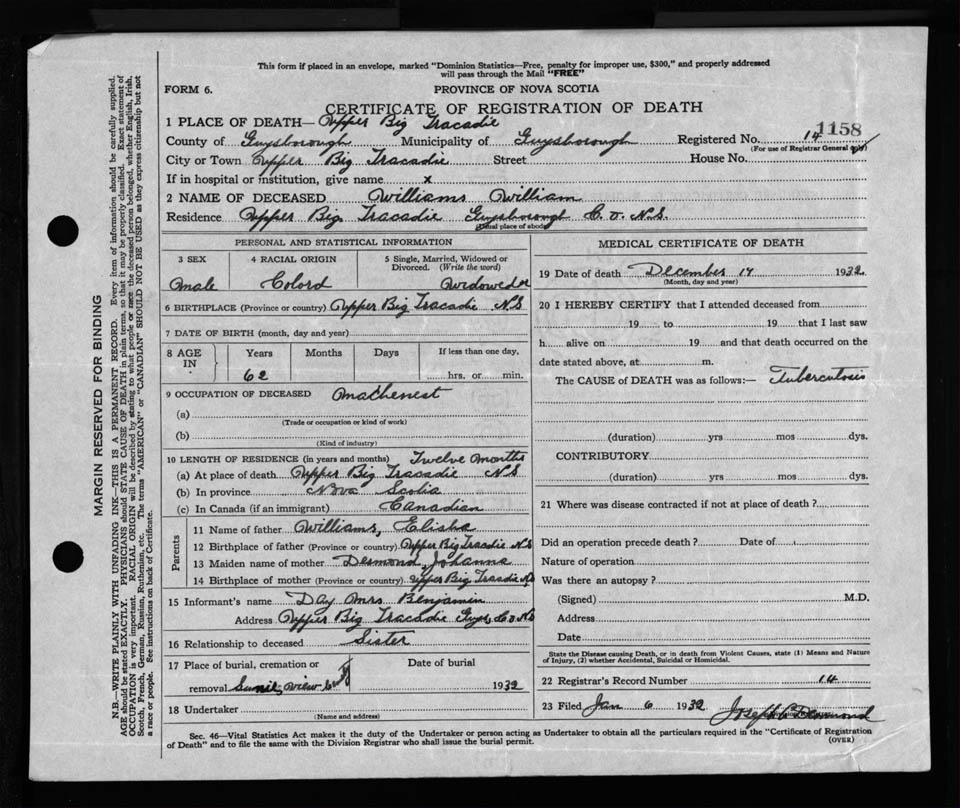 This form if placed in an envelope, marked "Dominion Statistics—Free, penalty for improper use, $300," and properly addressed
will pass through the Mail "FREE"
FORM 6.
PROVINCE OF NOVA SCOTIA
CERTIFICATE OF REGISTRATION OF DEATH
1 PLACE OF DEATH— Upper Big Tracadie
1158
County of Guysborough Municipality of Guysborough Registered No. 14
(For use of Registrar General only)
City or Town Upper Big Tracadie Street House No.
If in hospital or institution, give name x
2 NAME OF DECEASED Williams William
Residence Upper Big Tracadie Guysborough Co. N.S.
(Usual place of abode)
PERSONAL AND STATISTICAL INFORMATION
3 SEX 4 RACIAL ORIGIN 5 Single, Married, Widowed or
Divorced. (Write the word)
Male Colord Widowed
6 BIRTHPLACE (Province or country) Upper Big Tracadie N S
7 DATE OF BIRTH (month, day and year)
8 AGE IN Years Months Days If less than one day,
62 hrs. or min.
9 OCCUPATION OF DECEASED Mathenest
(a)
(Trade or occupation or kind of work)
(b)
(Kind of industry)
10 LENGTH OF RESIDENCE (in years and months) Twelve Months
(a) At place of death Upper Big Tracadie N S
(b) In province Nova Scotia
(c) In Canada (if an immigrant) Canadian
Parents
11 Name of father Williams, Elisha
12 Birthplace of father (Province or country) Upper Big Tracadie N S
13 Maiden name of mother Desmond, Johanna
14 Birthplace of mother (Province or country) Upper Big Tracadie N S
15 Informant's name Day Mrs Benjamin
Address Upper Big Tracadie Guys. Co N S
16 Relationship to deceased Sister
17 Place of burial, cremation or Date of burial
removal 1932
18 Undertaker
(Name and address)
MEDICAL CERTIFICATE OF DEATH
19 Date of death December 17 1932
(Month, day and year)
20 I HEREBY CERTIFY that I attended deceased from
19 to 19 that I last saw
h alive on 19 and that death occurred on the
date stated above, at m.
The CAUSE of DEATH was as follows:— Tuberculosis
(duration) yrs mos dys.
CONTRIBUTORY
(duration) yrs mos dys.
21 Where was disease contracted if not at place of death?
Did an operation precede death? Date of
Nature of operation
Was there an autopsy?
(Signed) M.D.
Address
Date
State the Disease causing Death, or in death from Violent Causes, state (1) Means and Nature
of Injury, (2) whether Accidental, Suicidal or Homicidal.
22 Registrar's Record Number 14
23 Filed Jan 6 1932 Joseph Desmond
Sec. 46—Vital Statistics Act makes it the duty of the Undertaker or person acting as Undertaker to obtain all the particulars required in the "Certificate of Registration
of Death" and to file the same with the Division Registrar who shall issue the burial permit.
(OVER)
MARGIN RESERVED FOR BINDING
N.B.—WRITE PLAINLY WITH UNFADING INK—THIS IS A PERMANENT RECORD. Every item of information should be carefully supplied.
AGE should be stated EXACTLY. PHYSICIANS should STATE CAUSE OF DEATH in plain terms, so that it may be properly classified. Exact statement of
OCCUPATION is very important. RACIAL ORIGIN will be described by stating to what people or race the deceased person belonged, whether English, Irish,
Scotch, French, German, Russian, Ruthenian, etc. The terms "AMERICAN" or "CANADIAN" SHOULD NOT BE USED as they express citizenship but not
a race or people. See instructions on back of Certificate.